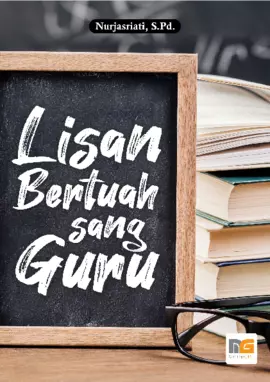 Nurjasriati, S.Pd.
Lisan
Bertuah
sang
Guru